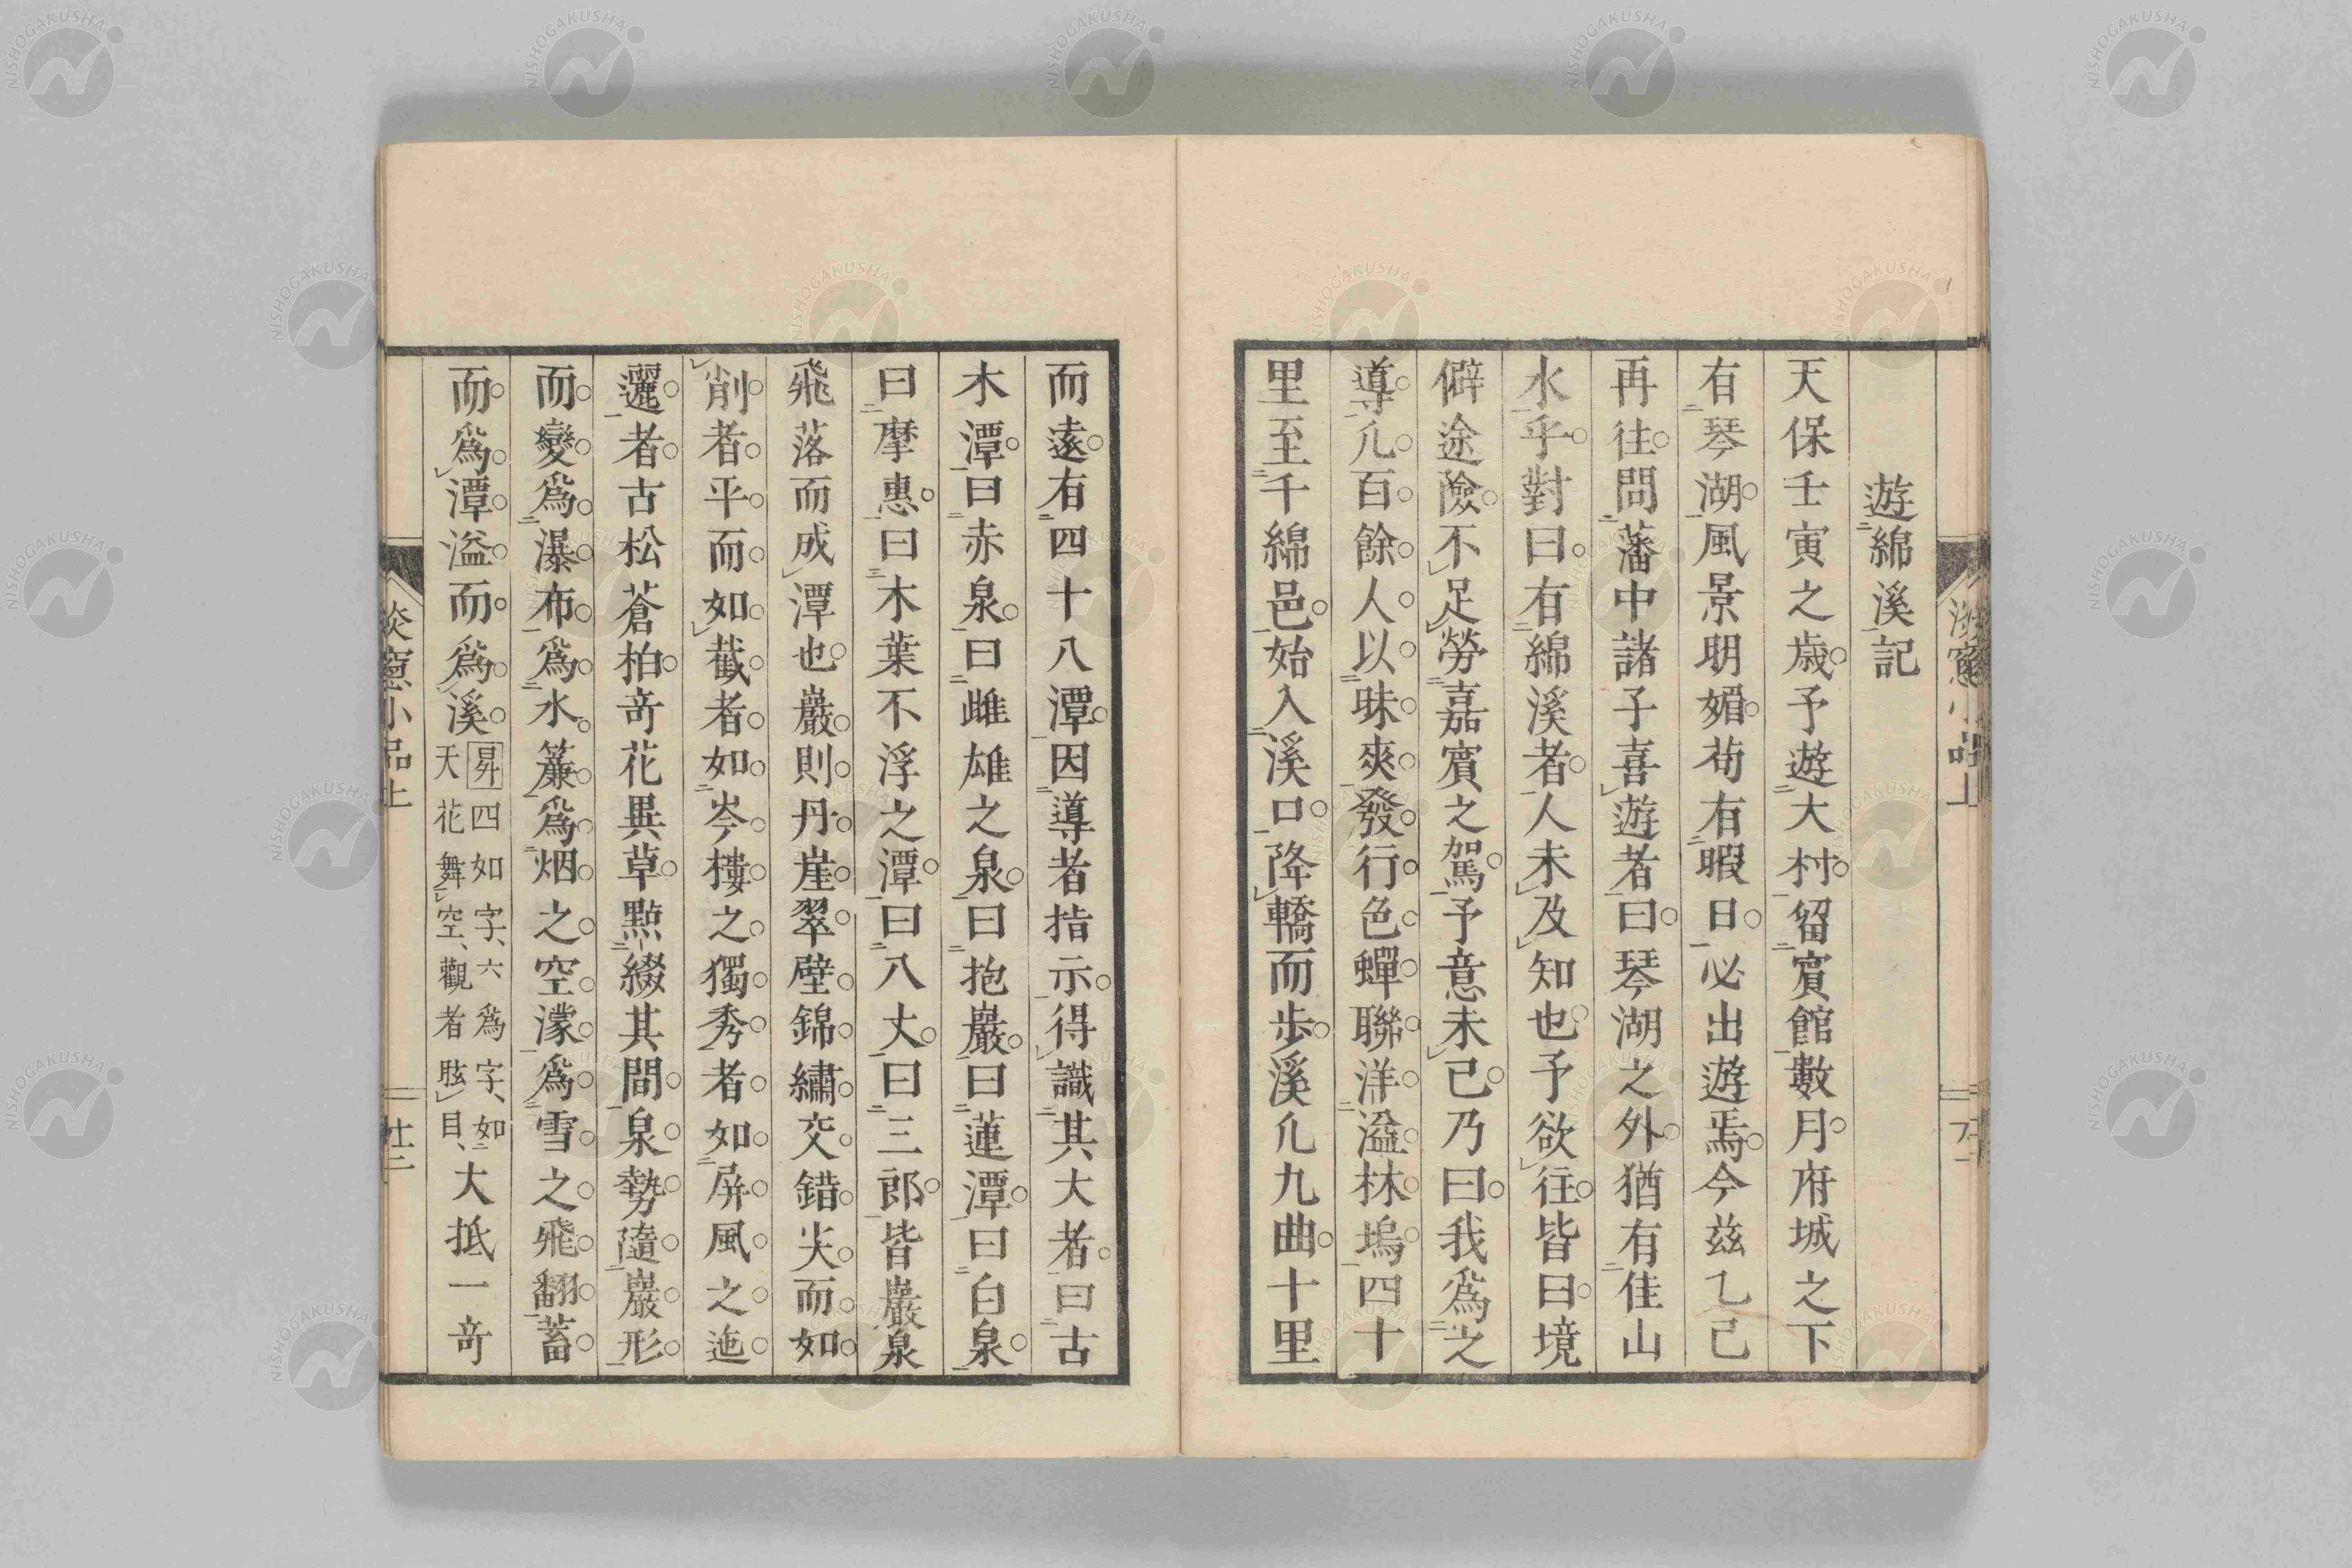 遊綿溪記
天保壬寅之歳予遊大村留賓館數月府城之下
有琴湖風景明媚苟有暇日必出遊焉今茲乙己
再往問藩中諸子喜遊者曰琴湖之外猶有佳山
水乎對曰有綿溪者人未及知也予欲往皆曰境
僻途險不足勞嘉賓之駕予意未已乃曰我爲之
導凢百餘人以昧爽發行色蟬聯洋溢林塢四十
里至千綿邑始入溪口降轎而歩溪凢九曲十里
而遠有四十八潭因導者指示得識其大者曰古
木潭曰赤泉曰雌雄之泉曰抱巖曰蓮潭曰白泉
曰摩惠曰木葉不浮之潭曰八丈曰三郎皆巖泉
飛落而成潭也巖則丹崖翠壁錦繡交錯尖而如
削者平而如截者如岑樓之獨秀者如屏風之迤
邐者古松蒼柏竒花異草㸃綴其間泉勢隨巖形
而變爲瀑布爲水簾爲烟之空濛爲雪之飛翻蓄
而爲潭溢而爲溪
昇四如字、六爲字、如
天花舞空、觀者眩目、
大抵一竒
淡窻小品上
廿二
NISHOGAKUSHA